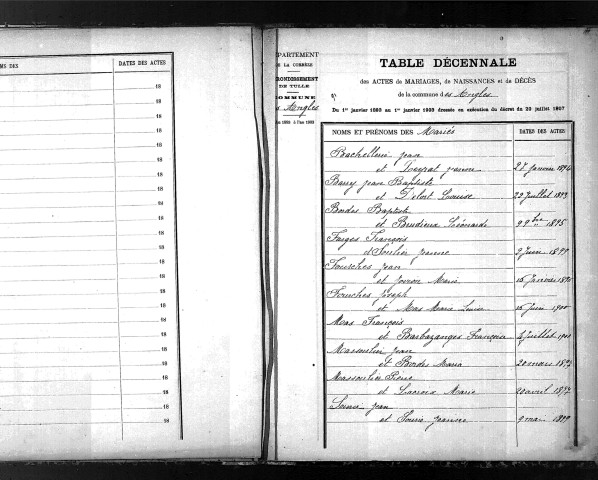 MS DES
DATES DES ACTES
18
18
18
18
18
18
18
18
18
18
18
18
18
18
18
18
18
18
PARTEMENT
DE LA CORRÈZE
RONDISSEMENT
DE TULLE
COMMUNE
s Angles
TABLE DÉCENNALE
des ACTES de MARIAGES, de NAISSANCES et de DÉCÈS
de la commune des Angles
Du 1er janvier 1893 au 1er janvier 1903 dressée en exécution du décret du 20 juillet 1807
NOMS ET PRÉNOMS DES Mariés
DATES DES ACTES
Bachellerie Jean
et Peyrat Jeanne 27 Janvier
Barry Jean Baptiste
et Delort Louise 29 Juillet 1899
Bordes Baptiste
et Brudieux Léonarde 9 9bre 1895
Farges François
et Soulier Jeanne 2 Juin
Jean
et Marie 16
Joseph
et Mas Marie Louise 16 Juin 1900
Mas François
et Barbazanges Françoise Juillet
Massoulier Jean
et Bordes Maria 20 mars
Massoulier Pierre
et Lacroix Marie 20 avril
Jean
et Jeanne 9 mai 1899